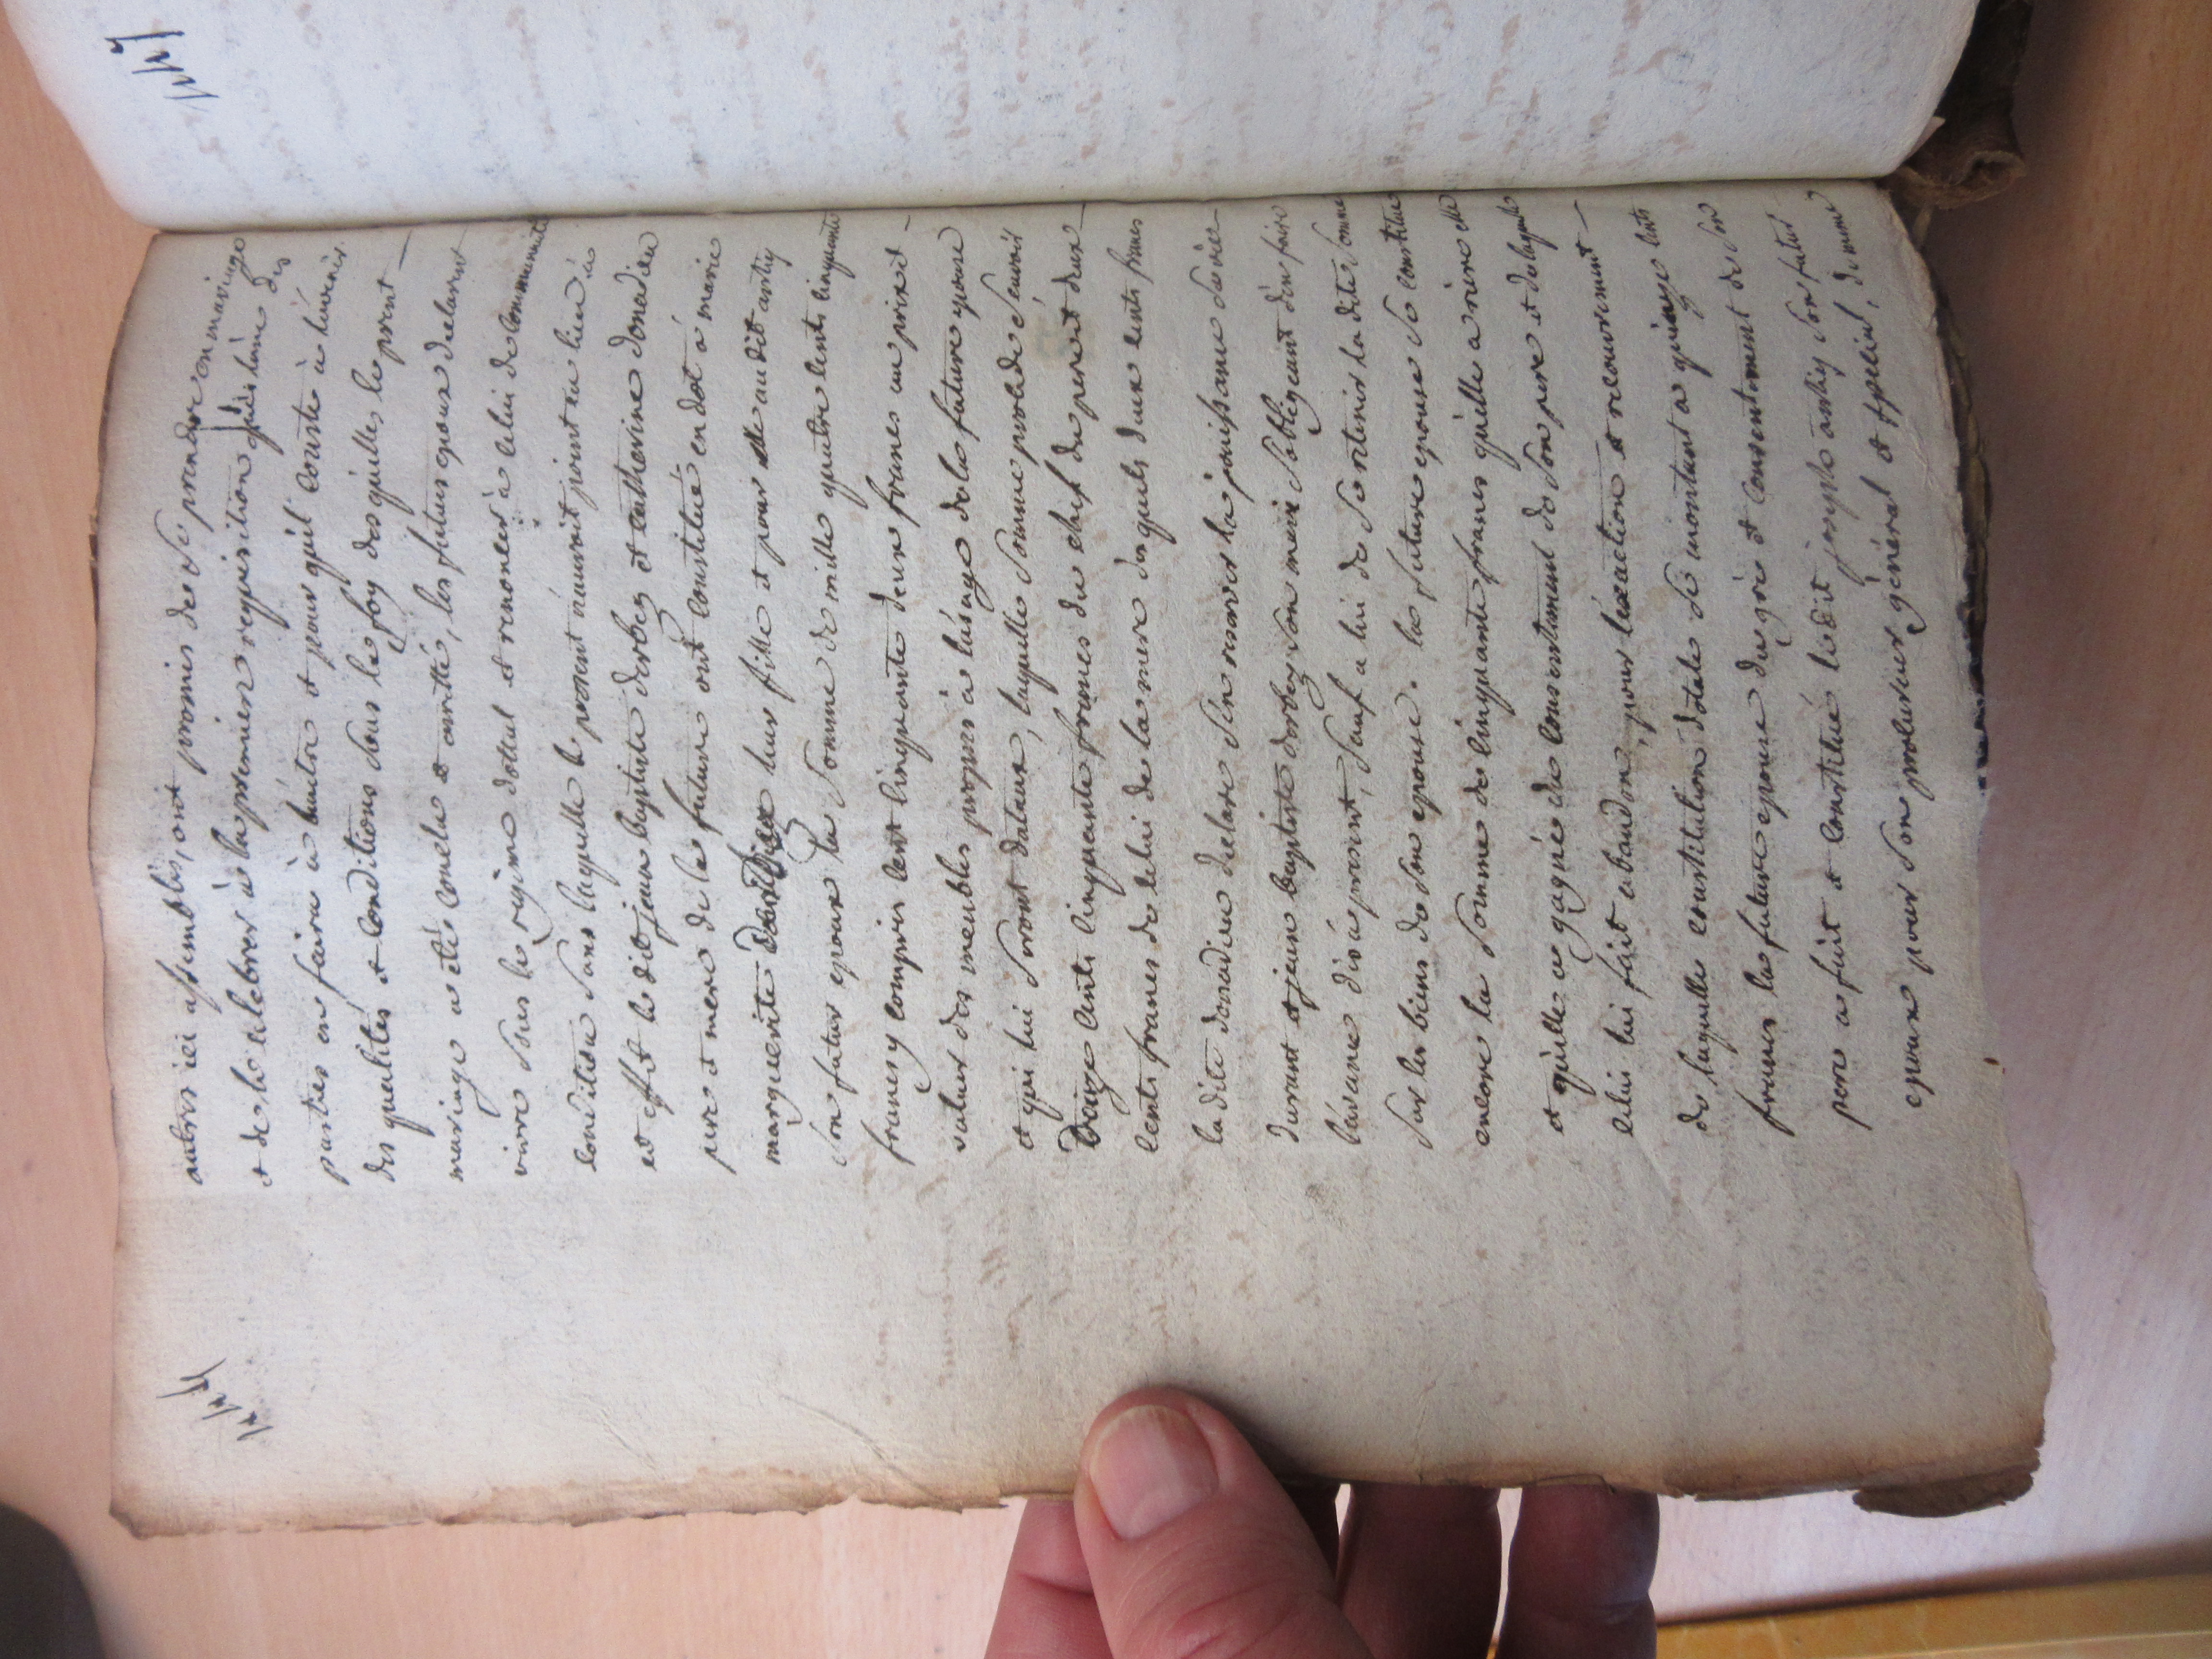 autres ici assemblés, ont promis de se prendre en mariage
et de le celebrer à la premiere requisition qu'une des
parties en faira à l'autre et pour quil conste à l'avenir
des qualités et conditions sous la foy desquelles le present
mariage a été conclu et arretté, les futurs epoux declarent
vivre sous le regime dottal et renoncer à celui de communauté
condition sans laquelle le present n'auroit point eu lieu
et effet le dit jean baptiste dorbez et catherine donadieu
pere et mere de la future ont constitué en dot à marie
marguerite leur fille et pour elle au dit astiez
son futur epoux la somme de mille quatre cents cinquante
francs y compris cent cinquante deux francs au prix et
valeur des meubles propres à l'usage de la future epouse
et qui lui seront dataux, laquelle somme procede scavoir
Douze cents cinquante francs du chef du pere et deux
cents francs de celui de la mere desquels deux cents francs
la dite donadieu declare s'en reserver la jouissance sa vie
durant et jean baptiste dorbez son mari s'obligeant d'en faire
l'avance dès à present, sauf a lui de se retenir la dite somme
sur les biens de son epouse. la future epouse se constitue
encore la somme de cinquante francs qu'elle a riere elle
et qu'elle a gagnée du consentement de son pere et de laquelle
celui lui fait abandon, pour l'exaction et recouvrement
de laquelle constitution dotale se montant a quinze cents
francs la future epouse du gré et consentement de son
pere a fait et constitué ledit joseph astiez son futur
epoux pour son procureur général et special, de meme